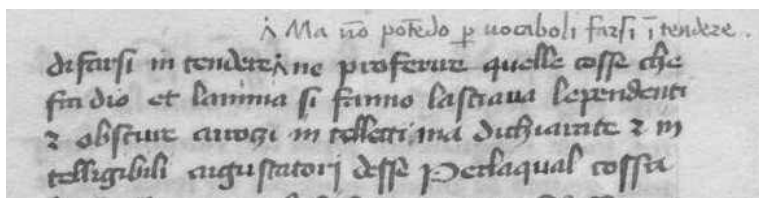 Ma nō potēdo ꝑ uocaboli farsi ītendere.
di farsi in tendere ne proferire quelle cosse che
fra dio et lanima si fanno lassaua le pendenti
⁊ obscure a rozi in telletti, ma dichiarate ⁊ in
telligibili a gustatori desse Perlaqual cossa